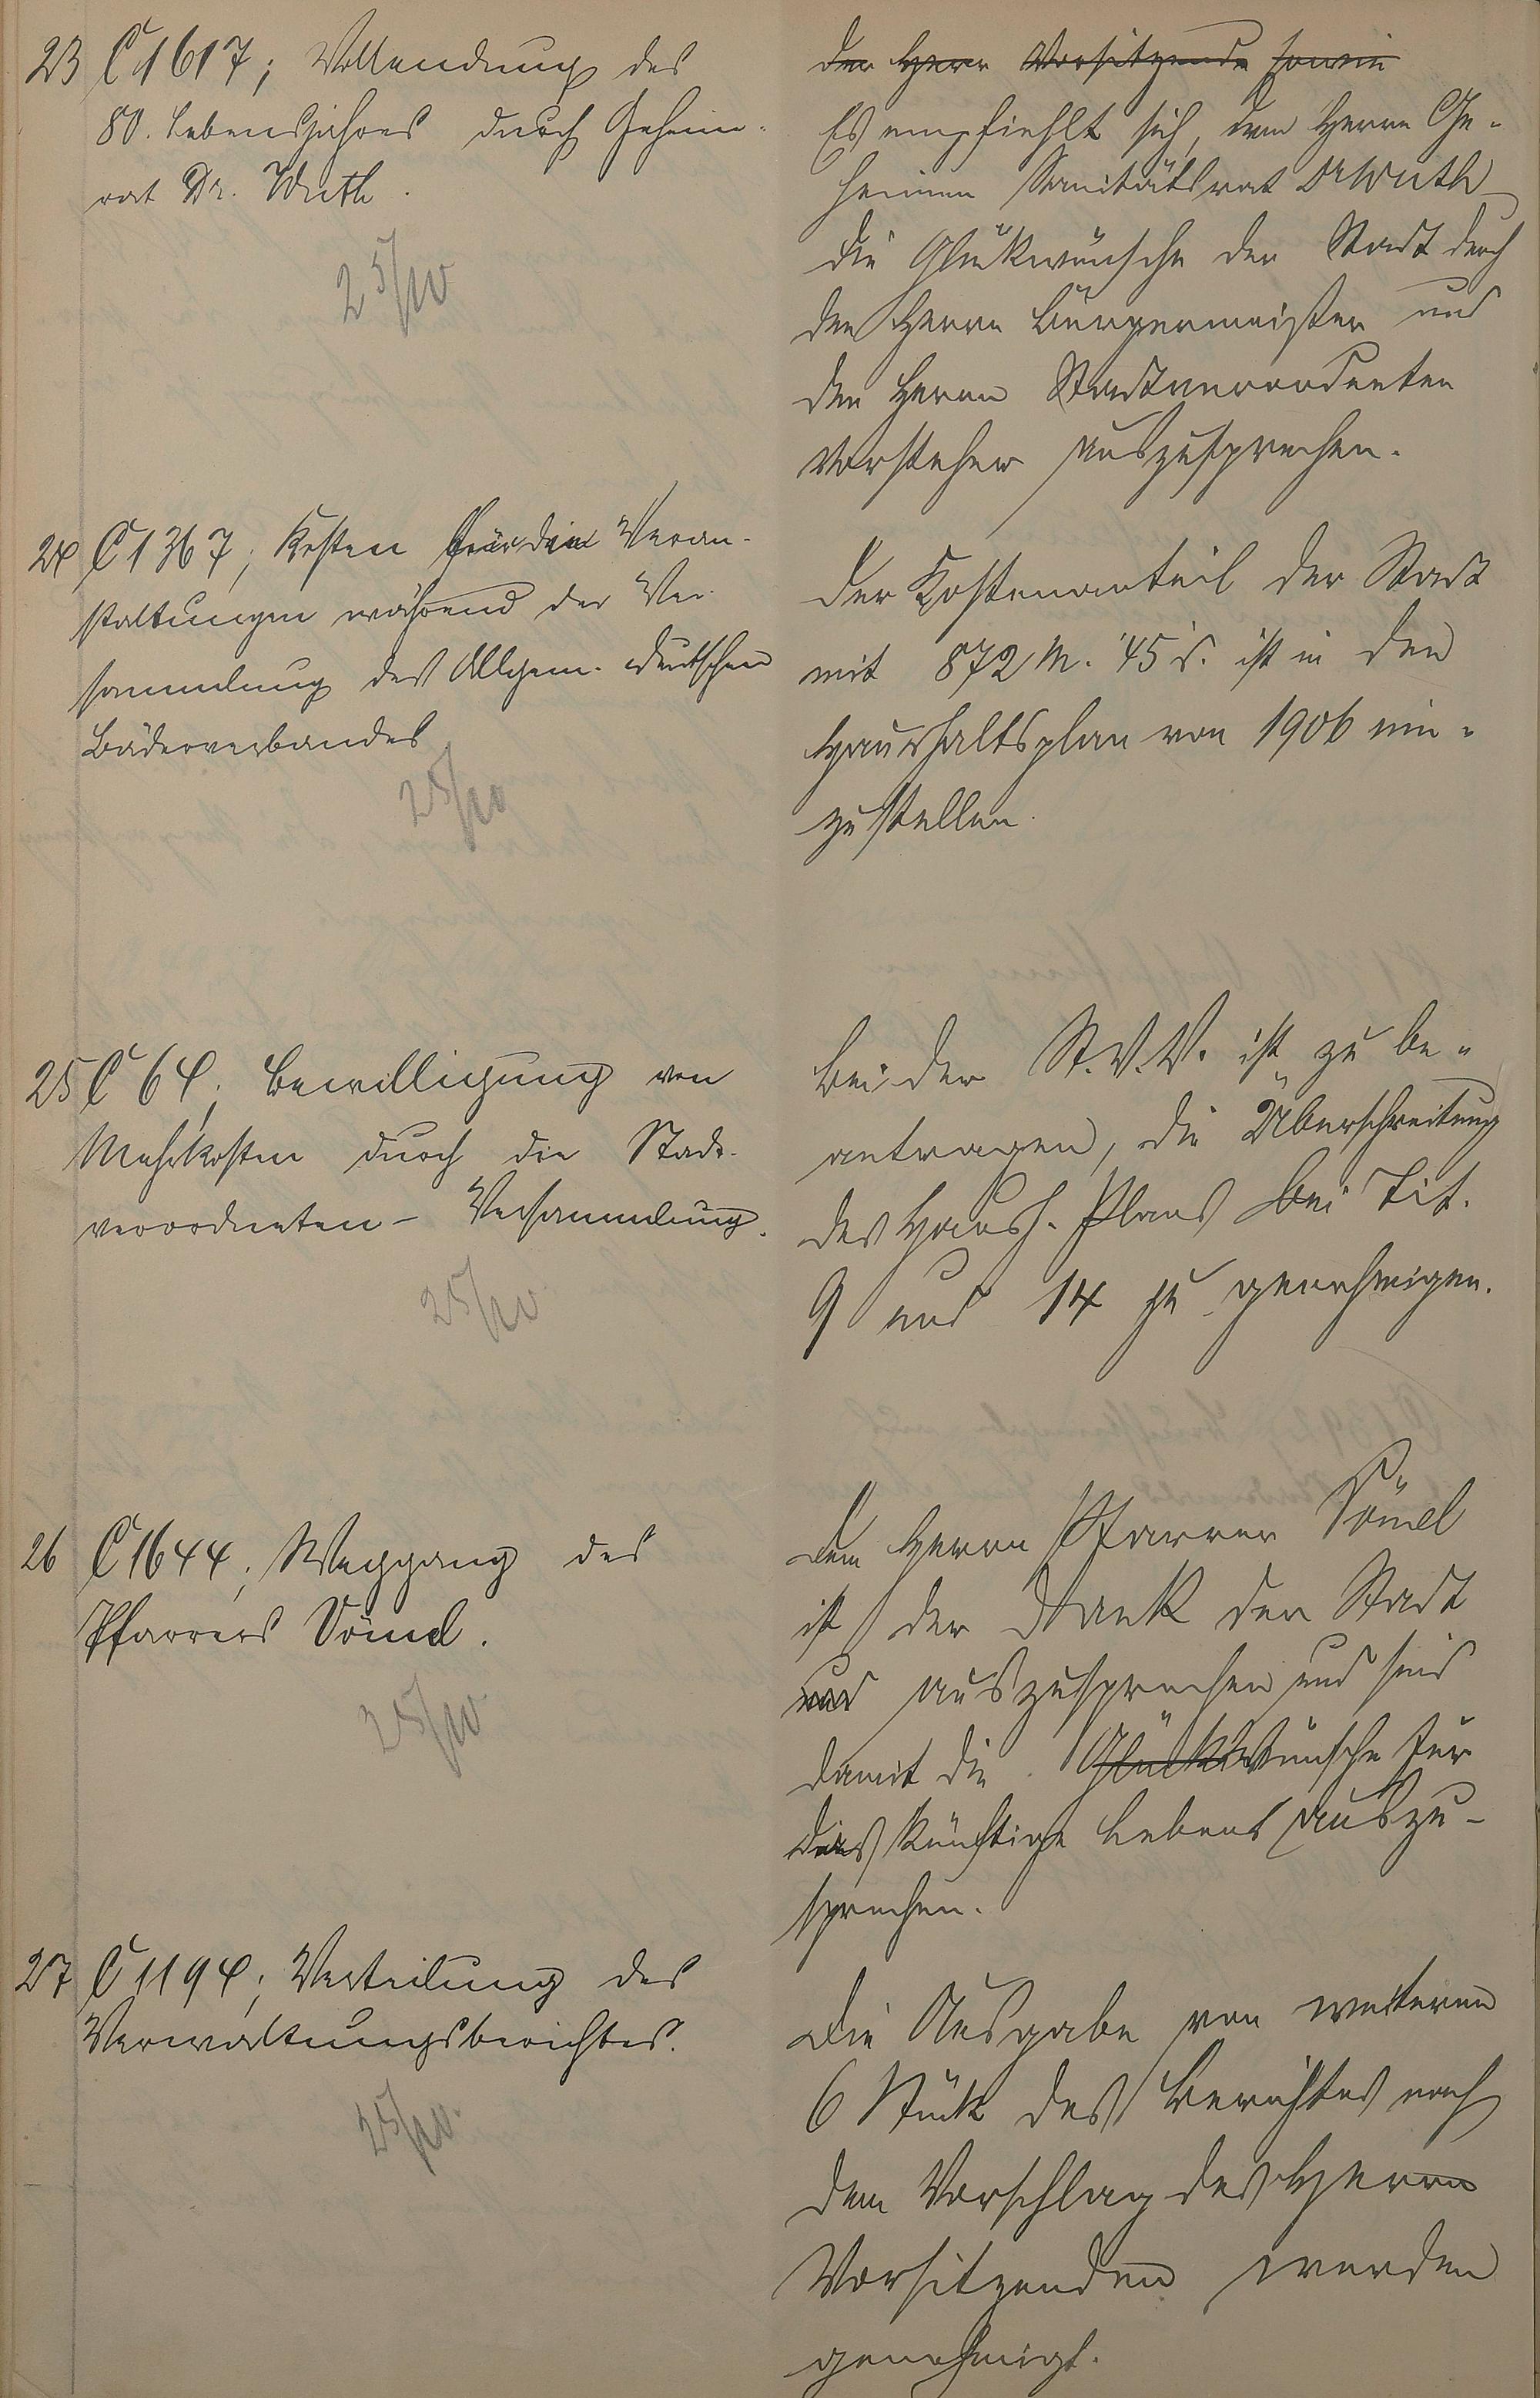 23 C 1617; Vollendung des
80. Lebensjahres durch Geheim-
rat Dr. Wuth.
25/10
der Herr Vorsitzende sowie
Es empfiehlt sich, dem Herrn Ge-
heimen Sanitätsrat Dr Wuth
die Glückwünsche der Stadt durch
den Herrn Bürgermeister und
den Herrn Stadtverordneten
Vorsteher auszusprechen.
24 C 1367; Kosten für die Veran-
staltungen während der Ver-
sammlung des Allgem. deutschen
Bäderverbandes
25/10
Der Kostenanteil der Stadt
mit 872 M. 45 S. ist in den
Haushaltsplan von 1906 ein-
zustellen.
25 C 64; Bewilligung von
Mehrkosten durch die Stadt-
verordneten-Versammlung.
25/10
Bei der St.V.V. ist zu be-
antragen, die Überschreitung
des Haush. Plans bei Tit.
9 und 14 zu genehmigen.
26 C 1644; Weggang des
Pfarrers Sömel.
25/10
Dem Herrn Pfarrer Sömel
ist der Dank der Stadt
und auszusprechen und sind
damit die Glückwünsche für
das künftige Leben auszu-
sprechen.
27 C 1194; Verteilung des
Verwaltungsberichtes.
25/10.
Die Ausgabe von weiteren
6 Stück des Berichtes nach
dem Vorschlag des Herrn
Vorsitzenden werden
genehmigt.